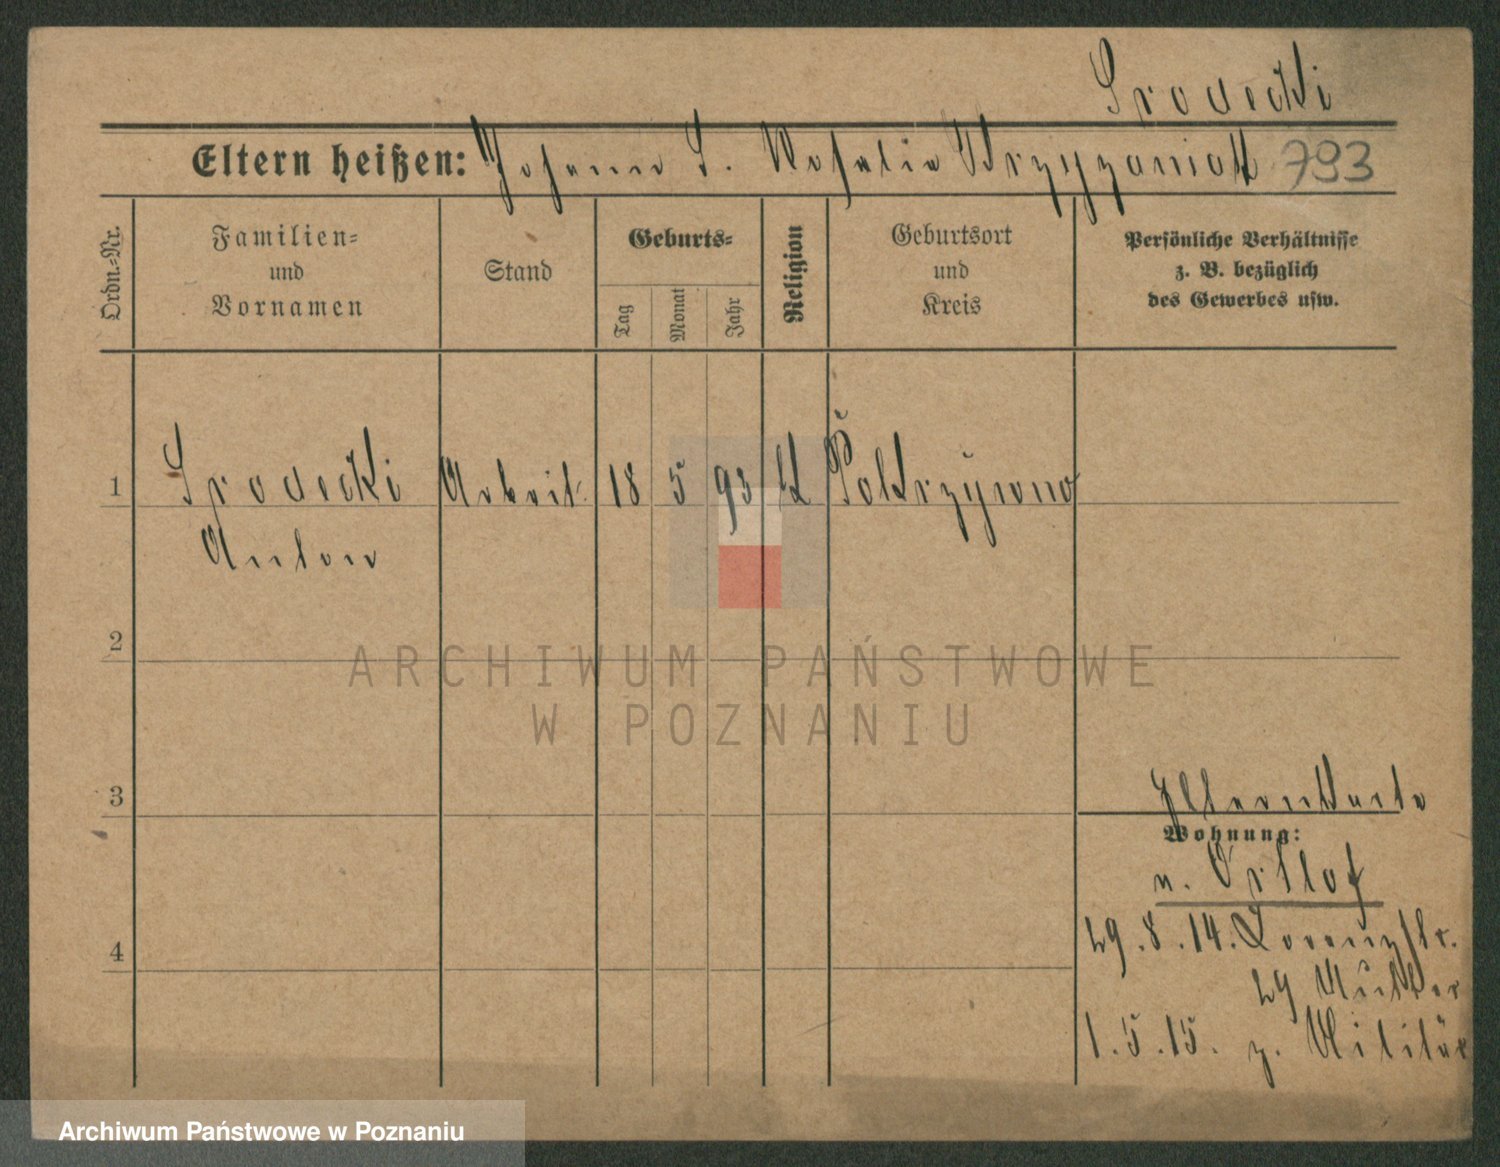 Srodecki
Eltern heißen: Johann S. Rosalia Krzyżaniak 793
Ordn.-Nr.
Familien-
und
Vornamen
Stand
Geburts-
Tag
Monat
Jahr
Religion
Geburtsort
und
Kreis
Persönliche Verhältnisse
z. B. bezüglich
des Gewerbes usw.
1 Srodecki Arbeit. 18 5 93 k Pokrzywno
Anton
2
3
Elternkarte
Wohnung:
n. Ortlof
4
29.8.14. Lorenzstr.
29 Mutter
1.5.15. z. Militär
ARCHIWUM PAŃSTWOWE
W POZNANIU
Archiwum Państwowe w Poznaniu